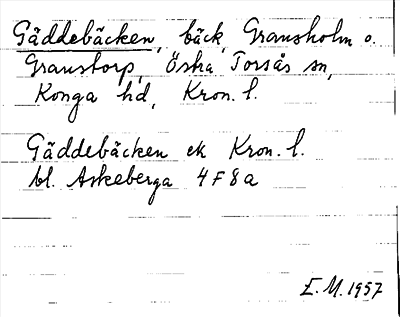 Gäddebäcken, bäck, Gransholm o.
Granstorp, Östra Torsås sn,
Konga hd, Kron. l.
Gäddebäcken ek Kron. l.
bl. Askeberga 4F8a
E.M. 1957